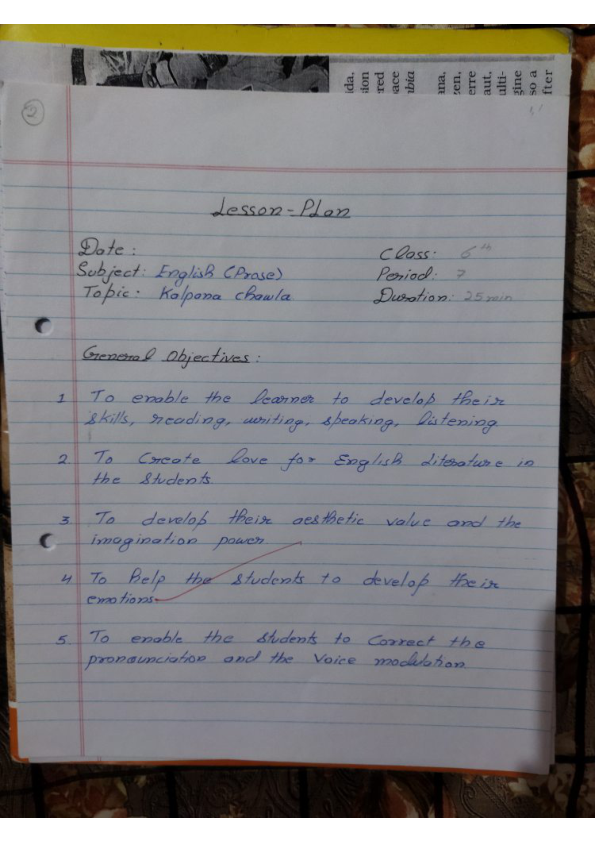 ida,
sion
red
pace
mbia
ana,
zen,
erre
aut,
ulti-
gine
so a
fter
2
Lesson-Plan
Date :
Class: 6th
Subject: English (Prose)
Period: 7
Topic: Kalpana Chawla
Duration: 25 min
General Objectives :
1 To enable the learner to develop their
skills, reading, writing, speaking, listening
2. To Create love for English Literature in
the students
3. To develop their aesthetic value and the
imagination power
4 To help the students to develop their
emotions
5. To enable the students to Correct the
pronounciation and the Voice modulation